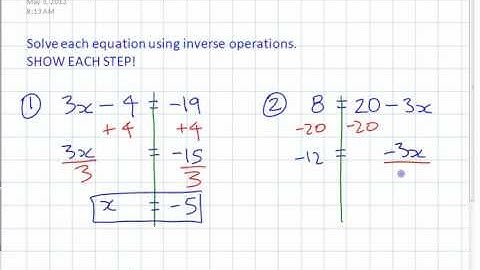 May 3, 2012
8:13 AM
Solve each equation using inverse operations.
SHOW EACH STEP!
① 3x - 4 = -19
+4 +4
3x/3 = -15/3
x = -5
② 8 = 20 - 3x
-20 -20
-12 = -3x